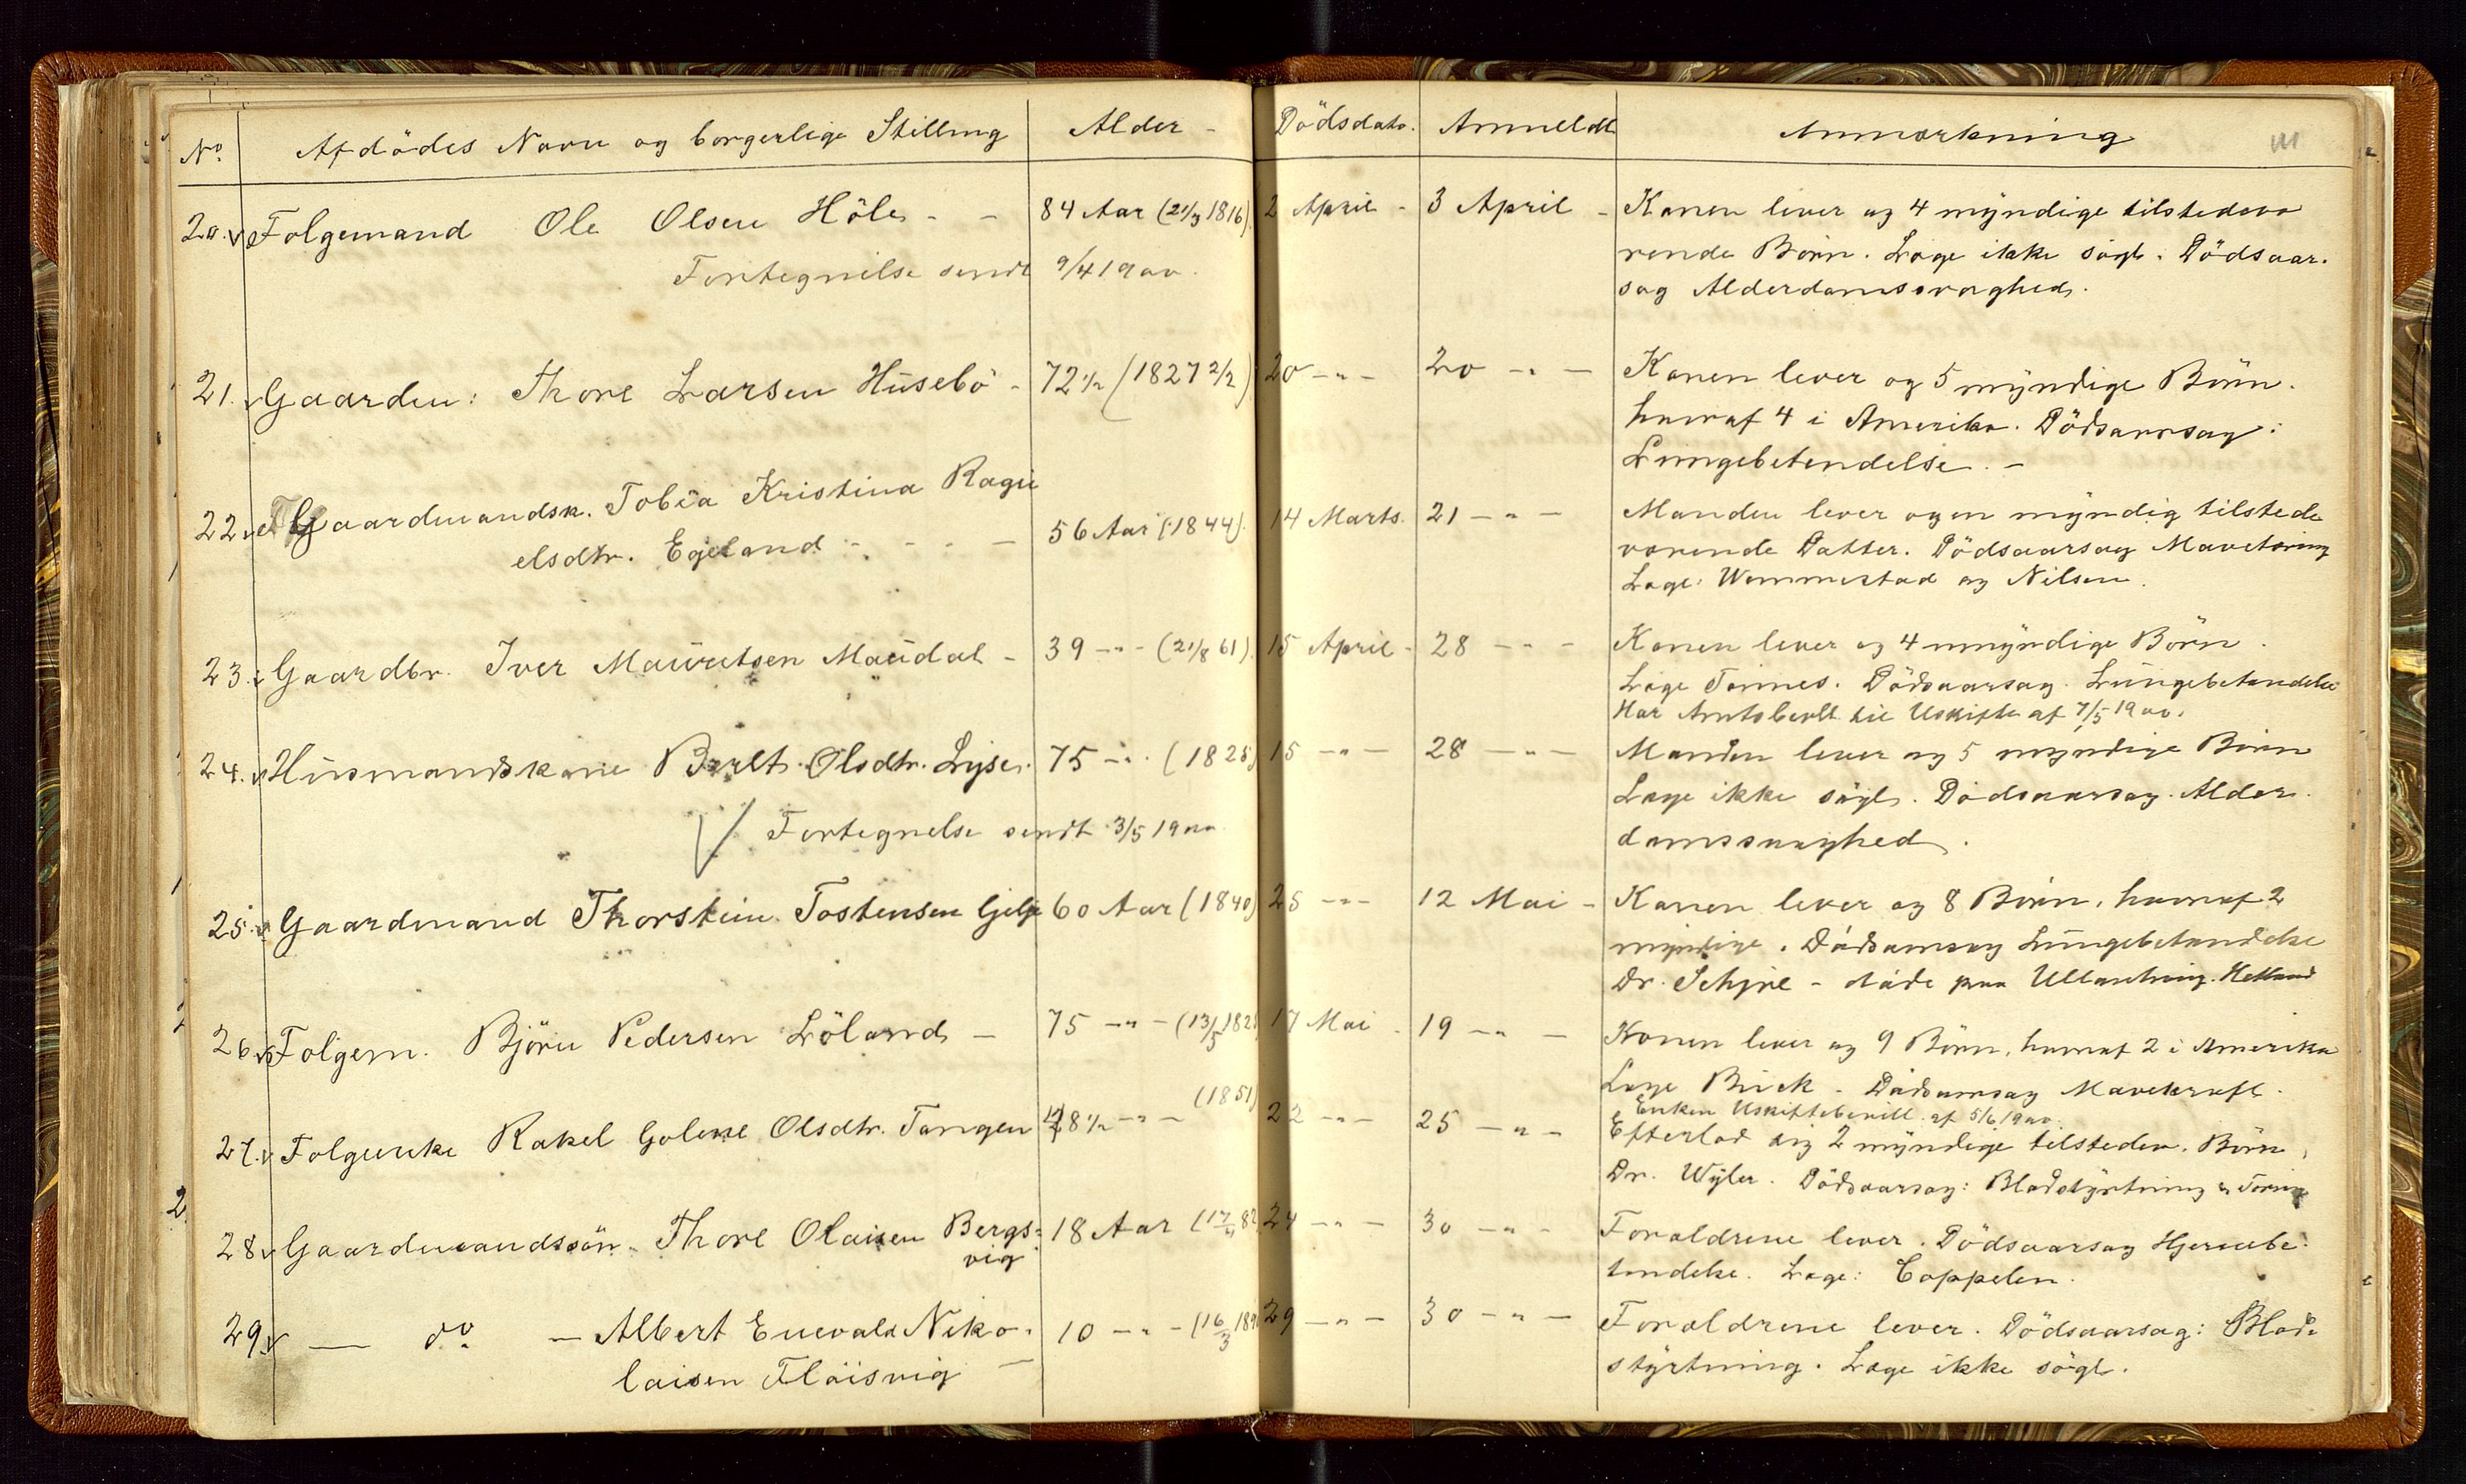 No. Afdödes Navn og borgerlige Stilling Alder - Dödsdato. Anmeldt Anmærkning
20. Folgemand Ole Olsen Höle - - 84 Aar (21/3 1816). 2 April - 3 April - Konen lever og 4 myndige tilstedevæ
rende Börn. Læge ikke sögt. Dödsaar-
sag Alderdomssvaghed.
Fortegnelse sendt 9/4 1900.
21. Gaardm: Thore Larsen Husebö - 72 1/2 (1827 2/2) 20 -"- 20 -"- Konen lever og 5 myndige Börn.
hvoraf 4 i Amerika. Dödsaarsag:
Lungebetændelse. -
22. Gaardmandsk. Tobia Kristina Ragu
elsdtr. Egeland - - - 56 Aar (1844). 14 Marts. 21 -"- Manden lever og en myndig tilstede
værende Datter. Dödsaarsag Mavetæring
Læge: Wommestad og Nilsen.
23. Gaardbr. Iver Mauritsen Maudal - 39 -"- (21/8 61). 15 April - 28 -"- Konen lever og 4 umyndige Börn.
Læge Tönnes. Dödsaarsag. Lungebetændelse
Har Amtsbevill. til Uskifte af 7/5 1900.
24. Husmandskone Berlt. Olsdtr. Lyse. 75 -"- (1825) 15 -"- 28 -"- Manden lever og 5 myndige Börn
Læge ikke sögt. Dödsaarsag. Alder-
domssvaghed.
Fortegnelse sendt 3/5 1900
25. Gaardmand Thorstein Tostensen Gilje 60 Aar (1840) 25 -"- 12 Mai - Konen lever og 8 Börn, hvoraf 2
myndige. Dödsaarsag Lungebetændelse
Dr. Schjve - döde paa Ullandhaug. Hetland
26. Folgem. Björn Pedersen Löland - 75 -"- (13/5 1825 17 Mai - 19 -"- Konen lever og 9 Börn, hvoraf 2 i Amerika
Læge Buck - Dödsaarsag Mavekræft.
Enken Uskiftebevill. af 5/6 1900.
27. Folgenke Rakel Golene Olsdtr. Tangen 48 1/2 -"- (1851) 22 -"- 25 -"- Efterlod sig 2 myndige tilstedev. Börn,
Dr. Wyler. Dödsaarsag: Blodstyrtning & Tæring
28. Gaardmandssön. Thore Olaisen Bergs=
vig 18 Aar (17/4 82 24 -"- 30 -"- Forældrene lever. Dödsaarsag Hjernebe-
tændelse. Læge: Coppelen.
29. — do. — Albert Enevald Niko-
laisen Flöisvig — 10 -"- (16/3 1890 29 -"- 30 -"- Forældrene lever. Dödsaarsag: Blod-
styrtning. Læge ikke sögt.